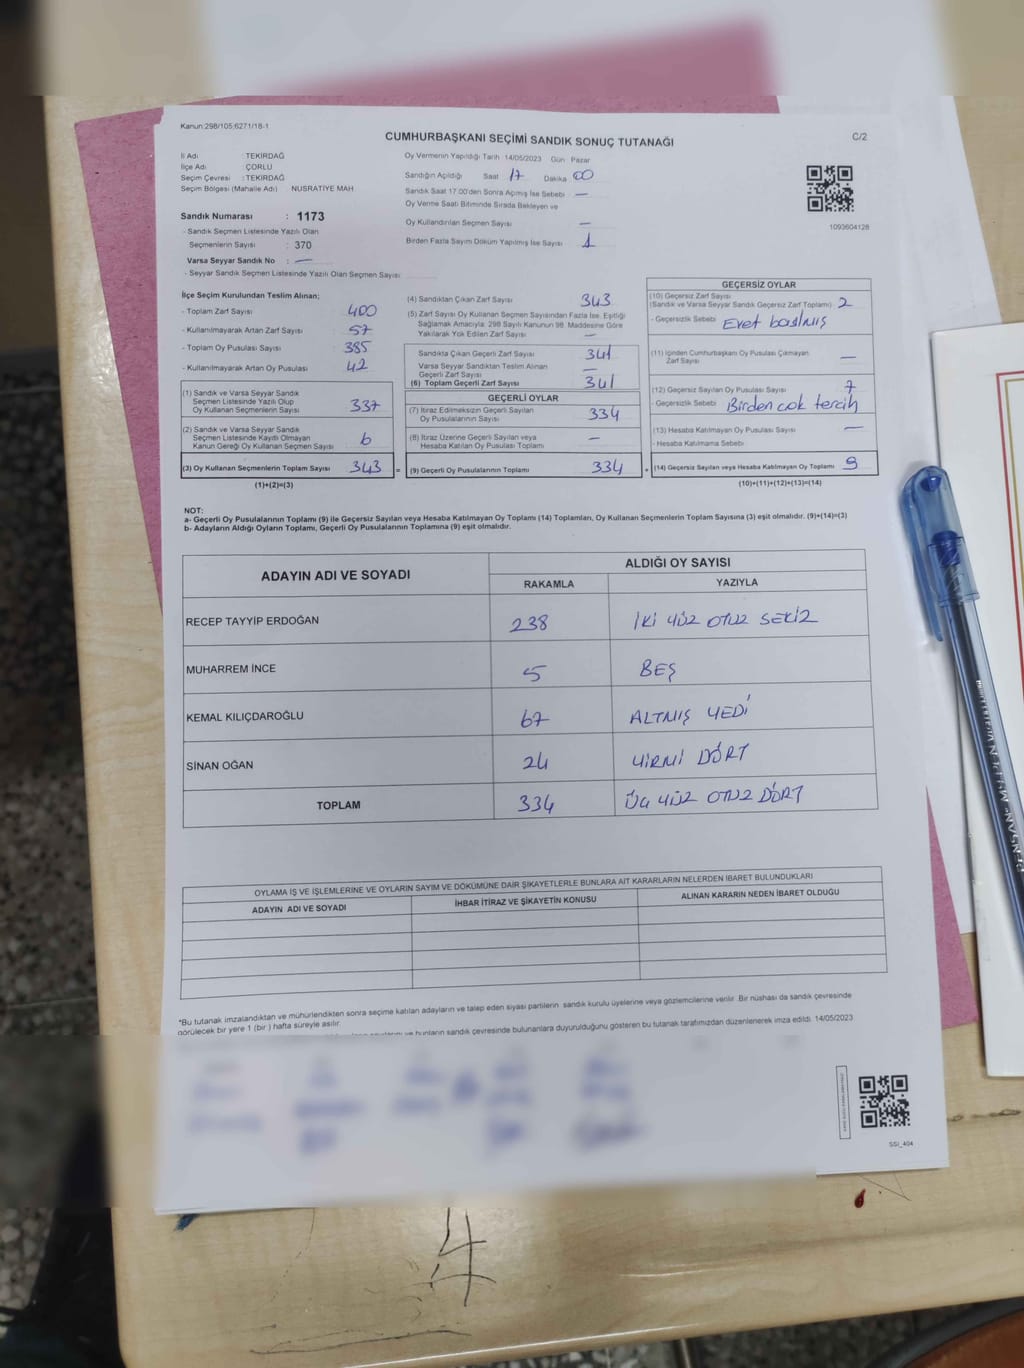 Kanun:298/105;6271/18-1
CUMHURBAŞKANI SEÇİMİ SANDIK SONUÇ TUTANAĞI
C/2
İl Adı : TEKİRDAĞ
İlçe Adı : ÇORLU
Seçim Çevresi : TEKİRDAĞ
Seçim Bölgesi (Mahalle Adı) NUSRATİYE MAH.
Sandık Numarası : 1173
- Sandık Seçmen Listesinde Yazılı Olan
Seçmenlerin Sayısı : 370
Varsa Seyyar Sandık No : —
- Seyyar Sandık Seçmen Listesinde Yazılı Olan Seçmen Sayısı:
Oy Vermenin Yapıldığı Tarih 14/05/2023 Gün Pazar
Sandığın Açıldığı Saat 17 Dakika 00
Sandık Saat 17:00'den Sonra Açımış İse Sebebi —
Oy Verme Saati Bitiminde Sırada Bekleyen ve
Oy Kullandırılan Seçmen Sayısı —
Birden Fazla Sayım Döküm Yapılmış İse Sayısı 1
1093604128
İlçe Seçim Kurulundan Teslim Alınan;
- Toplam Zarf Sayısı : 400
- Kullanılmayarak Artan Zarf Sayısı : 57
- Toplam Oy Pusulası Sayısı : 385
- Kullanılmayarak Artan Oy Pusulası : 42
(1) Sandık ve Varsa Seyyar Sandık
Seçmen Listesinde Yazılı Olup
Oy Kullanan Seçmenlerin Sayısı 337
(2) Sandık ve Varsa Seyyar Sandık
Seçmen Listesinde Kayıtlı Olmayan
Kanun Gereği Oy Kullanan Seçmen Sayısı 6
(3) Oy Kullanan Seçmenlerin Toplam Sayısı 343 =
(1)+(2)=(3)
(4) Sandıktan Çıkan Zarf Sayısı 343
(5) Zarf Sayısı Oy Kullanan Seçmen Sayısından Fazla İse, Eşitliği
Sağlamak Amacıyla; 298 Sayılı Kanunun 98. Maddesine Göre
Yakılarak Yok Edilen Zarf Sayısı —
Sandıkta Çıkan Geçerli Zarf Sayısı 341
Varsa Seyyar Sandıktan Teslim Alınan
Geçerli Zarf Sayısı —
(6) Toplam Geçerli Zarf Sayısı 341
GEÇERLİ OYLAR
(7) İtiraz Edilmeksizin Geçerli Sayılan
Oy Pusulalarının Sayısı 334
(8) İtiraz Üzerine Geçerli Sayılan veya
Hesaba Katılan Oy Pusulası Toplamı —
(9) Geçerli Oy Pusulalarının Toplamı 334 +
GEÇERSİZ OYLAR
(10) Geçersiz Zarf Sayısı
(Sandık ve Varsa Seyyar Sandık Geçersiz Zarf Toplamı) 2
- Geçersizlik Sebebi : Evet basılmış
(11) İçinden Cumhurbaşkanı Oy Pusulası Çıkmayan
Zarf Sayısı —
(12) Geçersiz Sayılan Oy Pusulası Sayısı 7
- Geçersizlik Sebebi Birden cok tercih
(13) Hesaba Katılmayan Oy Pusulası Sayısı —
- Hesaba Katılmama Sebebi
(14) Geçersiz Sayılan veya Hesaba Katılmayan Oy Toplamı 9
(10)+(11)+(12)+(13)=(14)
NOT:
a- Geçerli Oy Pusulalarının Toplamı (9) ile Geçersiz Sayılan veya Hesaba Katılmayan Oy Toplamı (14) Toplamları, Oy Kullanan Seçmenlerin Toplam Sayısına (3) eşit olmalıdır. (9)+(14)=(3)
b- Adayların Aldığı Oyların Toplamı, Geçerli Oy Pusulalarının Toplamına (9) eşit olmalıdır.
ADAYIN ADI VE SOYADI
ALDIĞI OY SAYISI
RAKAMLA YAZIYLA
RECEP TAYYİP ERDOĞAN 238 İKİ YÜZ OTUZ SEKİZ
MUHARREM İNCE 5 BEŞ
KEMAL KILIÇDAROĞLU 67 ALTMIŞ YEDİ
SİNAN OĞAN 24 YİRMİ DÖRT
TOPLAM 334 ÜÇ YÜZ OTUZ DÖRT
OYLAMA İŞ VE İŞLEMLERİNE VE OYLARIN SAYIM VE DÖKÜMÜNE DAİR ŞİKAYETLERLE BUNLARA AİT KARARLARIN NELERDEN İBARET BULUNDUKLARI
ADAYIN ADI VE SOYADI İHBAR İTİRAZ VE ŞİKAYETİN KONUSU ALINAN KARARIN NEDEN İBARET OLDUĞU
*Bu tutanak imzalandıktan ve mühürlendikten sonra seçime katılan adayların ve talep eden siyasi partilerin sandık kurulu üyelerine veya gözlemcilerine verilir. Bir nüshası da sandık çevresinde
görülecek bir yere 1 (bir ) hafta süreyle asılır.
ve bunların sandık çevresinde bulunanlara duyurulduğunu gösteren bu tutanak tarafımızdan düzenlenerek imza edildi. 14/05/2023
SSI_404